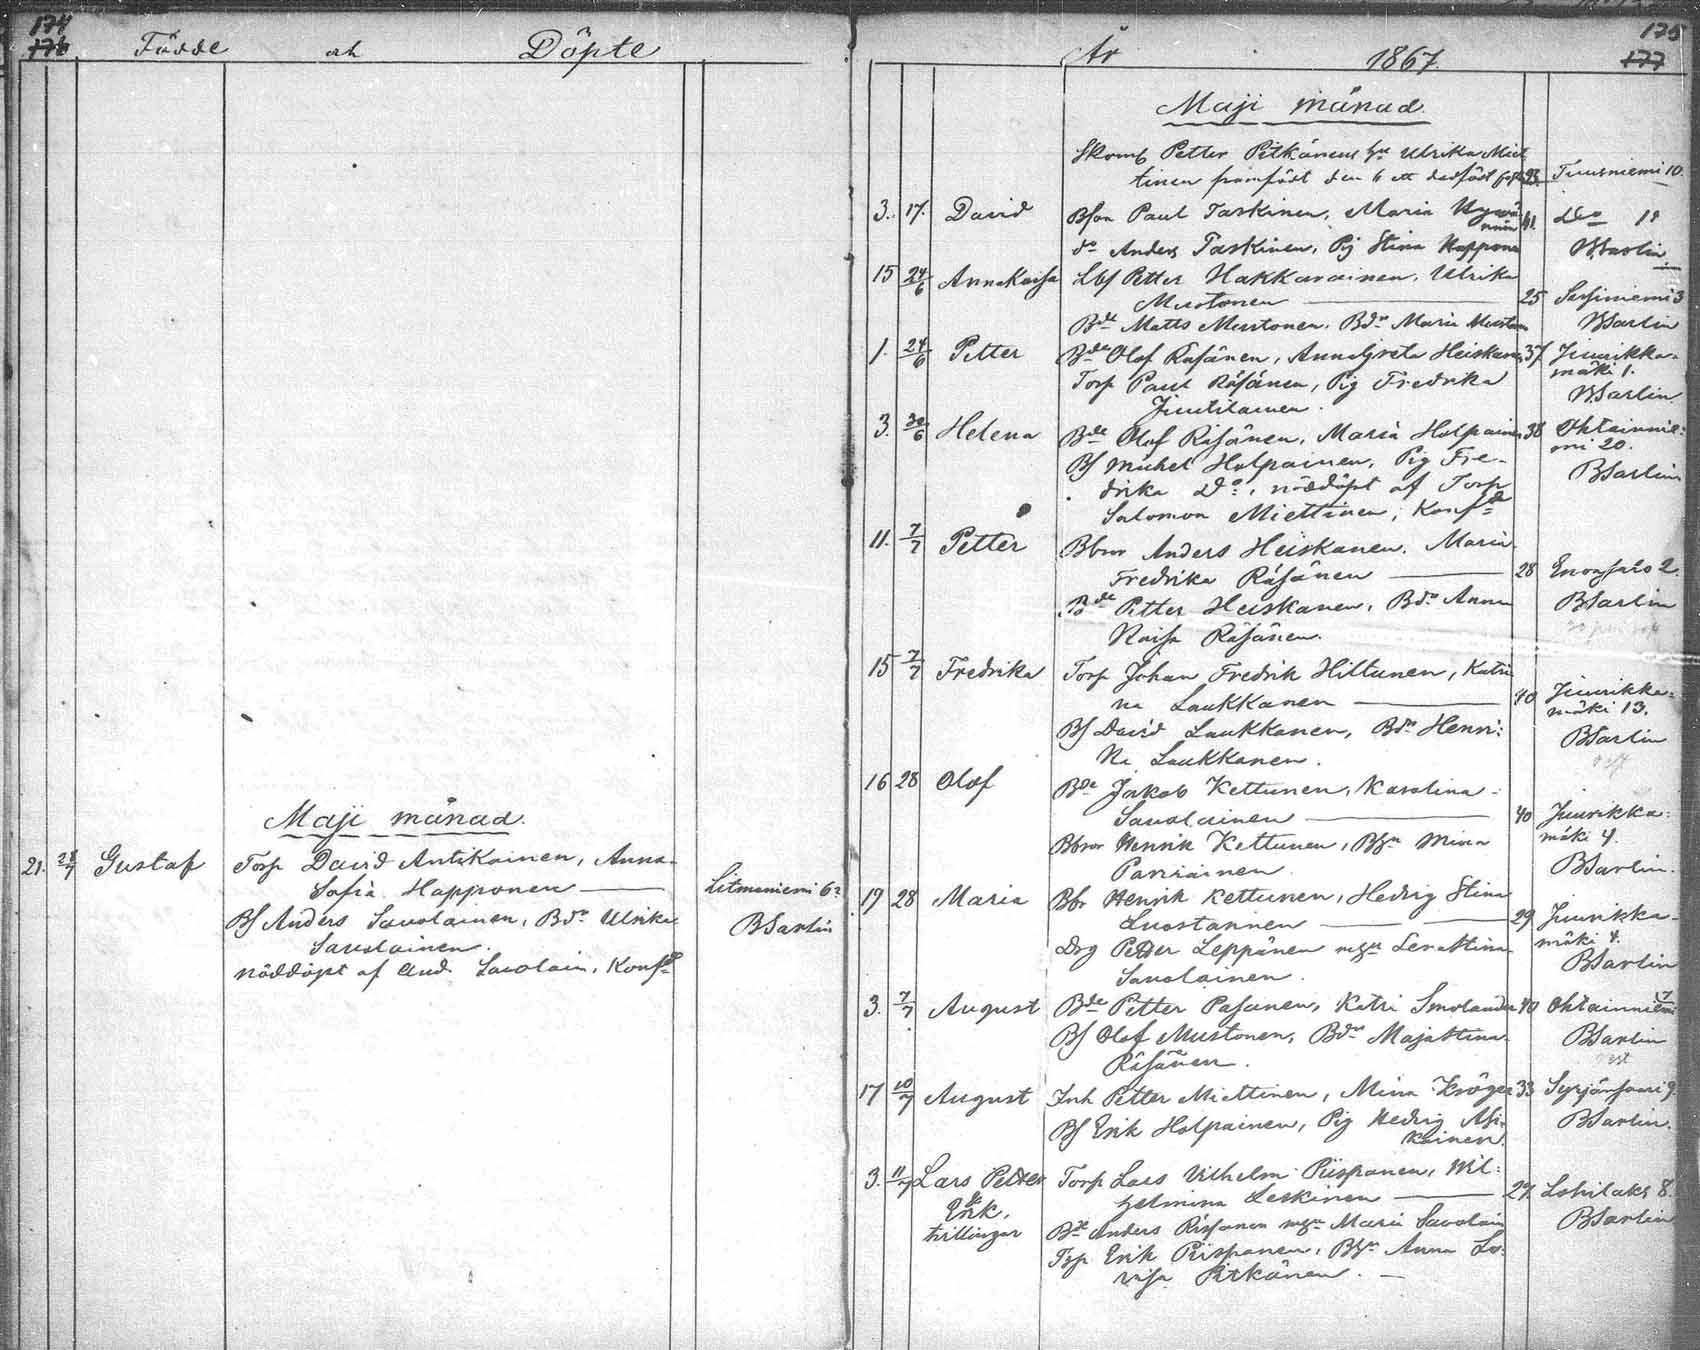 174
176
Födde och Döpte
Maji månad.
21. 28/7 Gustaf Torp David Antikainen, Anna
Sofia Happonen
Litmaniemi 6
Bs Anders Savolainen, Bdr Ulrika
BSarlin
Savolainen.
nöddöpt af And. Savolain. Konfd
175
177
År 1867.
Maji månad
Petter Pitkänens hu Ulrika Miet
tinen framfödt den 6 ett dödfödt
23 Tuusniemi 10.
3. 17. David Bson Paul Taskinen, Maria
41. Do
do Anders Taskinen, Pig Stina Happonen
BSarlin
15 24/6 Anna Kaisa Lbs Petter Hakkarainen, Ulrika
Mustonen 25 3
Bde Matts Mustonen, Bdr Maria Muston
BSarlin
1. 24/6 Petter Bde Olof Räsänen, Anna Greta Heiskanen 37 Juurikka-
mäki 1.
Torp Paul Räsänen, Pig Fredrika
BSarlin
Juutilainen.
3. 30/6 Helena Bde Olof Räsänen, Maria Holpainen 38 Ohtainnie-
mi 20.
Bs Mickel Holpainen, Pig Fre-
BSarlin
drika Do, nöddöpt af Torp
Salomon Miettinen, Konfd
11. 7/7 Petter Bbror Anders Heiskanen, Maria
Fredrika Räsänen 28 Enonsalo 2.
Bde Petter Heiskanen, Bdr Anna
BSarlin
Kaisa Räsänen.
15 7/7 Fredrika Torp Johan Fredrik Hiltunen, Katri
na Laukkanen 40 Juurikka-
mäki 13.
Bs David Laukkanen, Bdr Henri:
BSarlin
ka Laukkanen.
16 28 Olof Bde Jakob Kettunen, Karolina
Savolainen 40 Juurikka-
mäki 4.
Bbror Henrik Kettunen, Bhu Mina
BSarlin.
19 28 Maria Bbr Henrik Kettunen, Hedvig Stina
Luostarinen 29 Juurikka-
mäki 4.
Drg Petter Leppänen mhu Lena Stina
BSarlin
Savolainen.
3. 7/7 August Bde Petter Pasanen, Katri Smolander 40 Ohtainniemi 7
Bs Olof Mustonen, Bdr Maja Stina
BSarlin
Räsänen.
17 10/7 August Inh Petter Miettinen, Mina Kröger 33 Syrjänsaari 9.
Bs Erik Holpainen, Pig Hedvig Asi-
kainen.
BSarlin.
3. 11/7 Lars Petter Torp Lars Vilhelm Piispanen, Wil:
& Erik, helmina Leskinen 27. Lohilaks 8.
tvillingar Bde Anders Räsänen mhu Maria Savolain
BSarlin
Torp Erik Piispanen, Bhu Anna Lo:
visa Pitkänen.